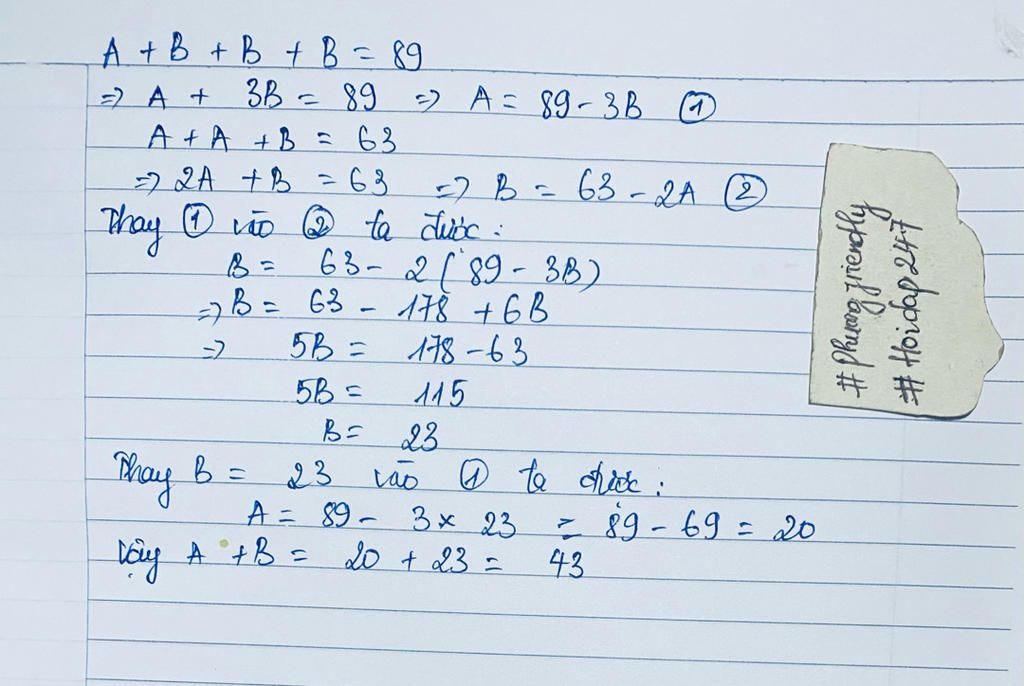 A + B + B + B = 89
=> A + 3B = 89 => A = 89 - 3B ①
A + A + B = 63
=> 2A + B = 63 => B = 63 - 2A ②
Thay ① vào ② ta được :
B = 63 - 2 ( 89 - 3B)
=> B = 63 - 178 + 6B
=> 5B = 178 - 63
5B = 115
B = 23
Thay B = 23 vào ① ta được :
A = 89 - 3 x 23 = 89 - 69 = 20
Vậy A + B = 20 + 23 = 43
# Phuong friendly
# Hoidap 247